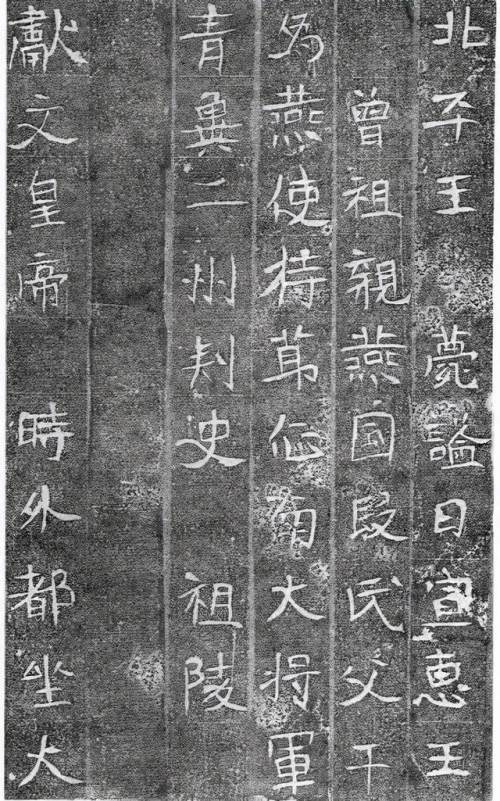 北平王 薨謚曰宣惠王
曾祖親燕國段氏父干
為燕使持節征南大將軍
青冀二州刾史 祖陵
獻文皇帝 時外都坐大